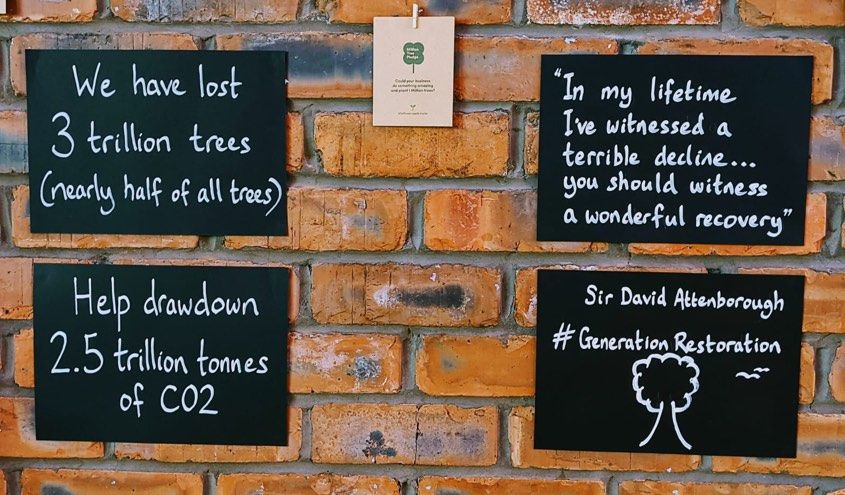 We have lost
3 trillion trees
(nearly half of all trees)
Million
Tree
Pledge
Could your business
do something amazing
and plant 1 Million trees?
"In my lifetime
I've witnessed a
terrible decline...
you should witness
a wonderful recovery"
Help drawdown
2.5 trillion tonnes
of CO2
Sir David Attenborough
# Generation Restoration